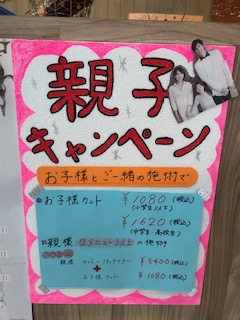 親子
キャンペーン
お子様とご一緒の施術で
お子様カット ¥1080(税込)
(小学生以下)
¥1620(税込)
(中学生・高校生)
親様 2メニュー以上の施術
親様 カット+リタッチカラー ¥5400(税込)
+
お子様カット ¥1080(税込)